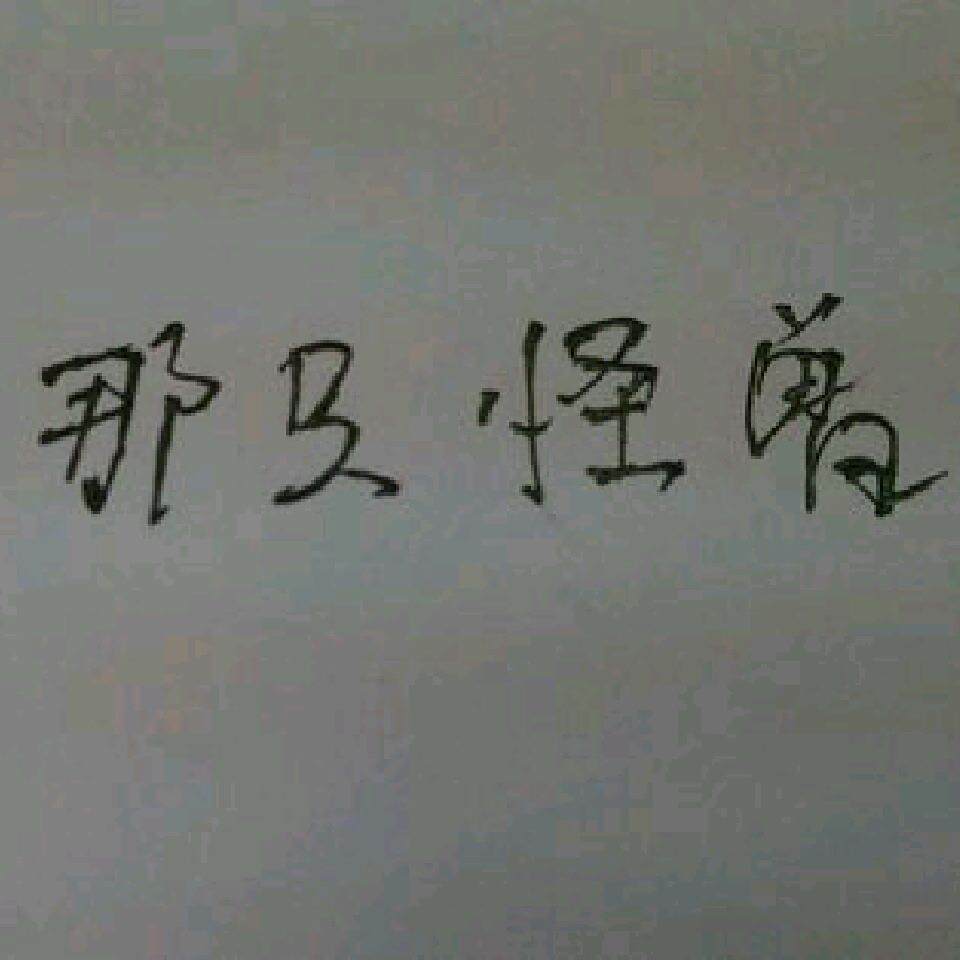 那只怪兽